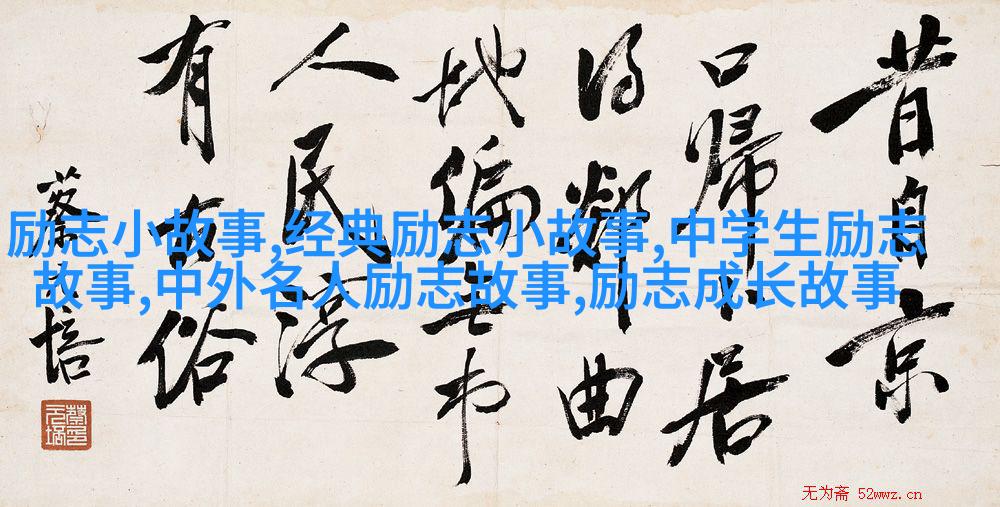 励志小故事,经典励志小故事,中学生励志
故事,中外名人励志故事,励志成长故事
昔自京
口歸卜居
得鄰曲
地偏無市
人民淳
有古俗
蔡元培
无为斋 52wwz.cn